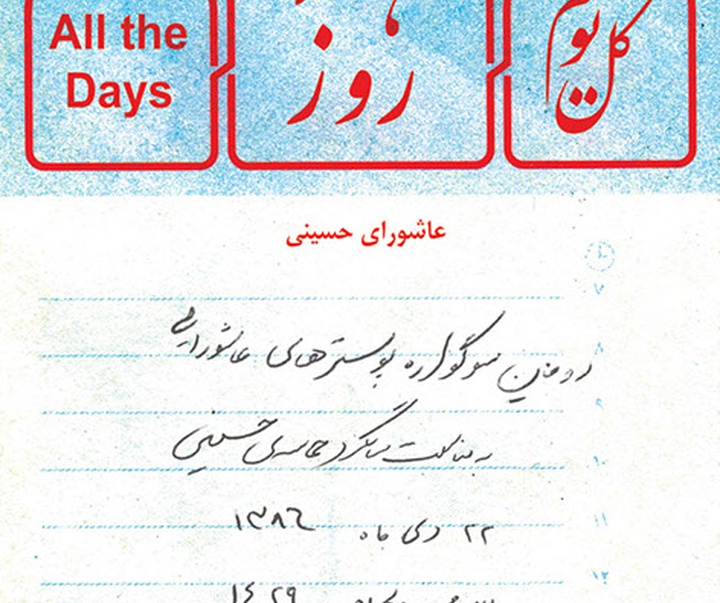 All the
Days
روز
کل یوم
عاشورای حسینی
۷
دومین سوگواره پوسترهای عاشورایی
۸
۹
به مناسبت سالگرد حماسه‌ی حسینی
۱۰
۱۱
۲۲ دی ماه ۱۳۸۶
۱۲
۱۴۲۹